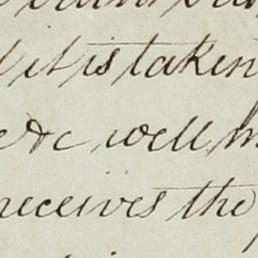 it is taken
&c well
receives the